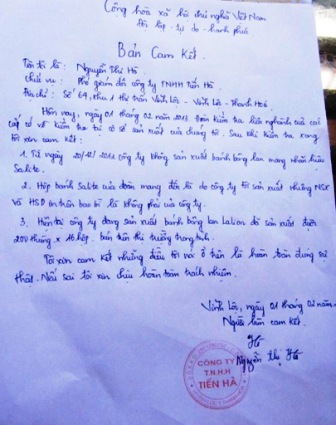 Cộng hòa xã hội chủ nghĩa Việt Nam
Độc lập - tự do - hạnh phúc
Bản Cam Kết.
Tôi tên là: Nguyễn Thị Hà.
Chức vụ: Phó giám đốc công ty TNHH Tiến Hà.
Địa chỉ: Số 64, khu 1 thị trấn Vĩnh Lộc - Vĩnh Lộc - Thanh Hoá.
Hôm nay, ngày 01 tháng 02 năm 2013 đoàn kiểm tra liên nghành của các
có về kiểm tra tại cơ sở sản xuất của chúng tôi. Sau khi kiểm tra xong
Tôi xin cam kết:
1. Từ ngày 20/12/2012 công ty không sản xuất bánh bông lan mang nhãn hiệu
Salite.
2. Hộp bánh Salite của đoàn mang đến là do công ty tôi sản xuất nhưng NSX
và HSD in trên bao bì là không phải của công ty.
3. Hiện tại công ty đang sản xuất bánh bông lan Lation đã sản xuất được
200 thùng x 16 hộp. bán trên thị trường trong tỉnh.
Tôi xin cam kết những điều tôi nói ở trên là hoàn toàn đúng sự
thật. Nếu sai tôi xin chịu hoàn toàn trách nhiệm.
Vĩnh Lộc, ngày 01 tháng 02 năm
Người làm cam kết.
Hà
Nguyễn Thị Hà
CÔNG TY
T.N.H.H
TIẾN HÀ